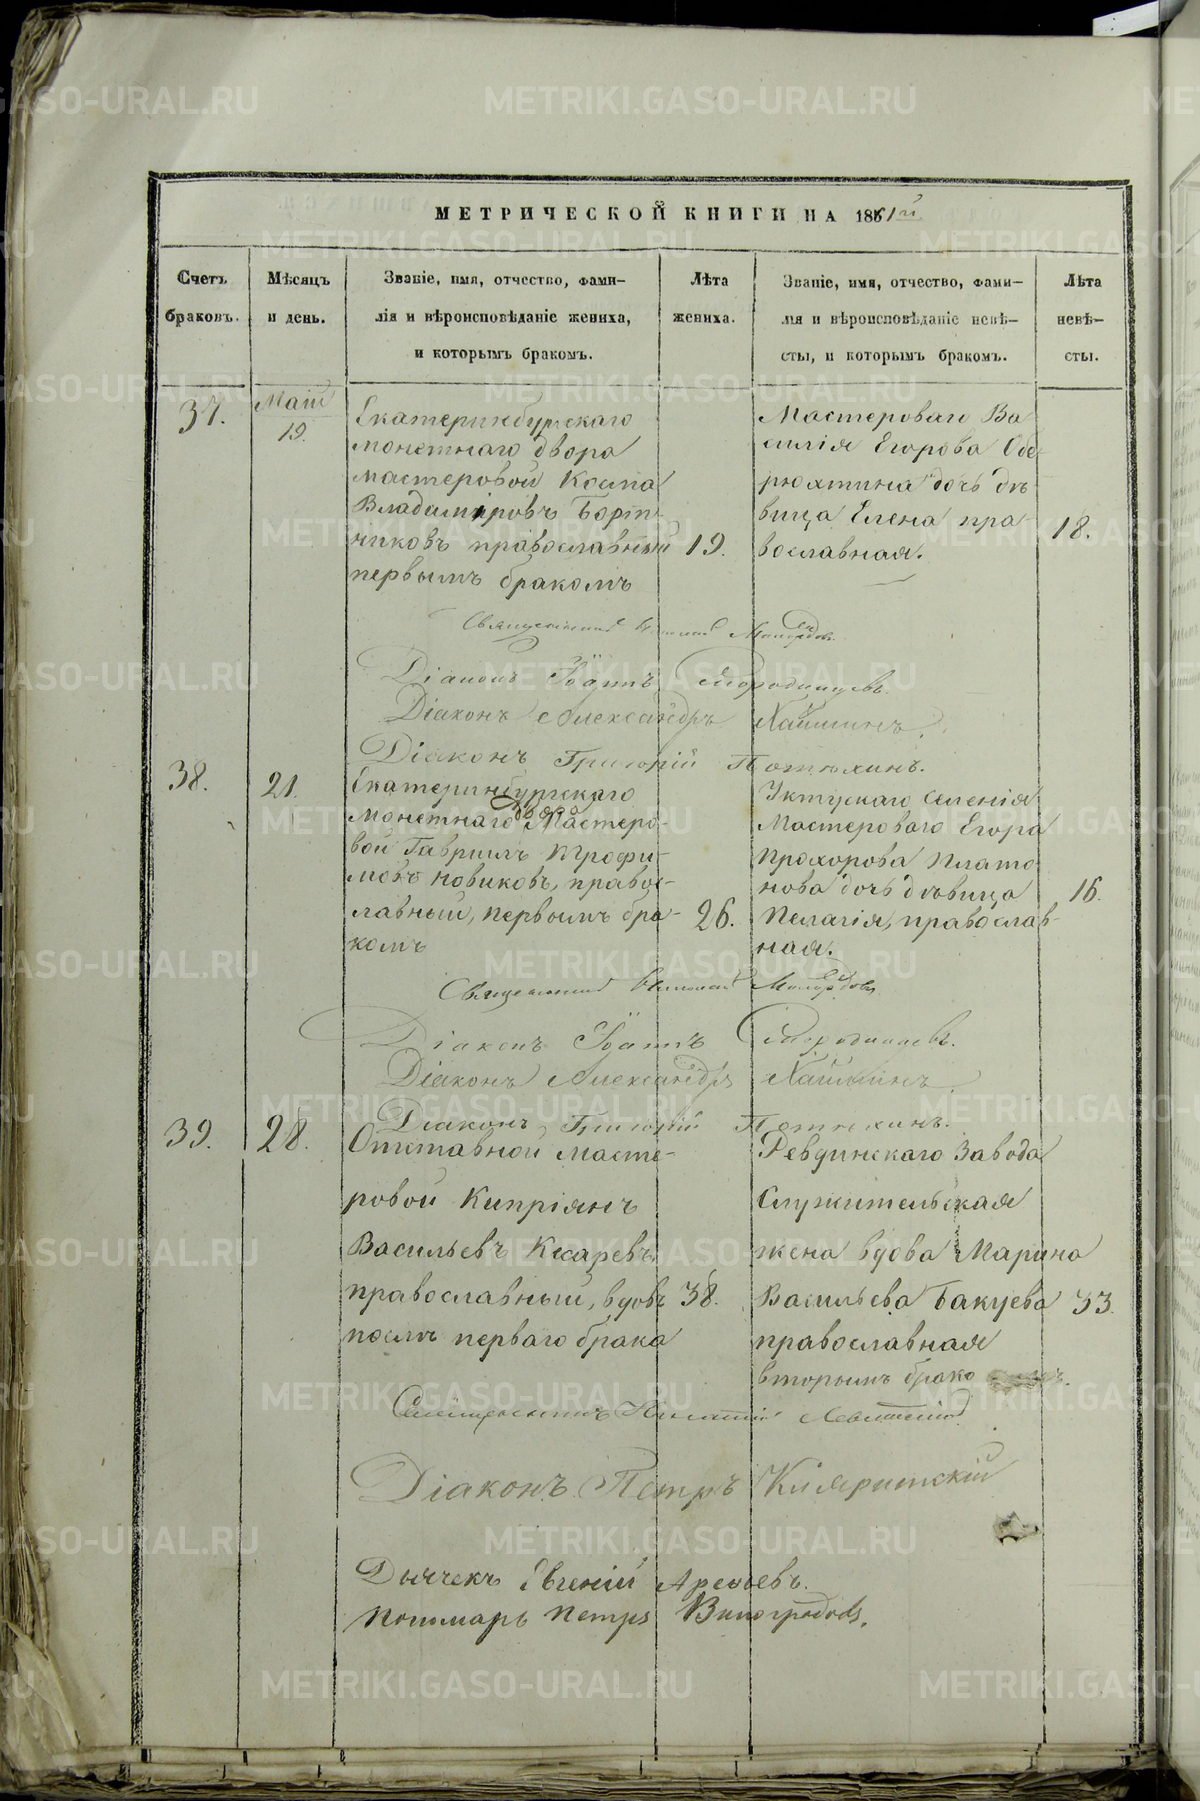 МЕТРИЧЕСКОЙ КНИГИ НА 1861й
Счетъ браковъ.
Мѣсяцъ и день.
Званіе, имя, отчество, фами-
лія и вѣроисповѣданіе жениха,
и которымъ бракомъ.
Лѣта жениха.
Званіе, имя, отчество, фами-
лія и вѣроисповѣданіе невѣ-
сты, и которымъ бракомъ.
Лѣта невѣ-
сты.
37.
Маій
19.
Екатеринбургскаго
монетнаго двора
мастеровой Косма
Владиміровъ
чиковъ православный
первымъ бракомъ
19.
Мастероваго Ва
силія Егорова Обе
рюхтина дочь дѣ
вица Елена пра-
вославная.
18.
Священникъ Николай
Діаконъ Іоаннъ Смородинцевъ.
Діаконъ Александръ Хайминъ.
Діаконъ Григорій Потѣхинъ.
38.
21.
Екатеринбургскаго
монетнаго двора Мастеро-
вой Гавріилъ Трофи-
мовъ Новиковъ, правос-
лавный, первымъ бра-
комъ
26.
Уктусскаго селенія
Мастероваго Егора
Прохорова Плато
нова дочь дѣвица
Пелагія, православ-
ная.
16.
Священникъ Николай
Діаконъ Іоаннъ Смородинцевъ.
Діаконъ Александръ Хайминъ
Діаконъ Григорій Потѣхинъ.
39.
28.
Отставной масте-
ровой Кипріянъ
Васильевъ
православный, вдовъ
послѣ перваго брака
38.
Ревдинскаго Завода
Служительская
жена вдова Марина
Васильева Бакуева
православная
вторымъ брако
33.
Діаконъ Петръ
Дьячекъ Евгеній
Пономарь Петръ Виноградовъ.
METRIKI.GASO-URAL.RU